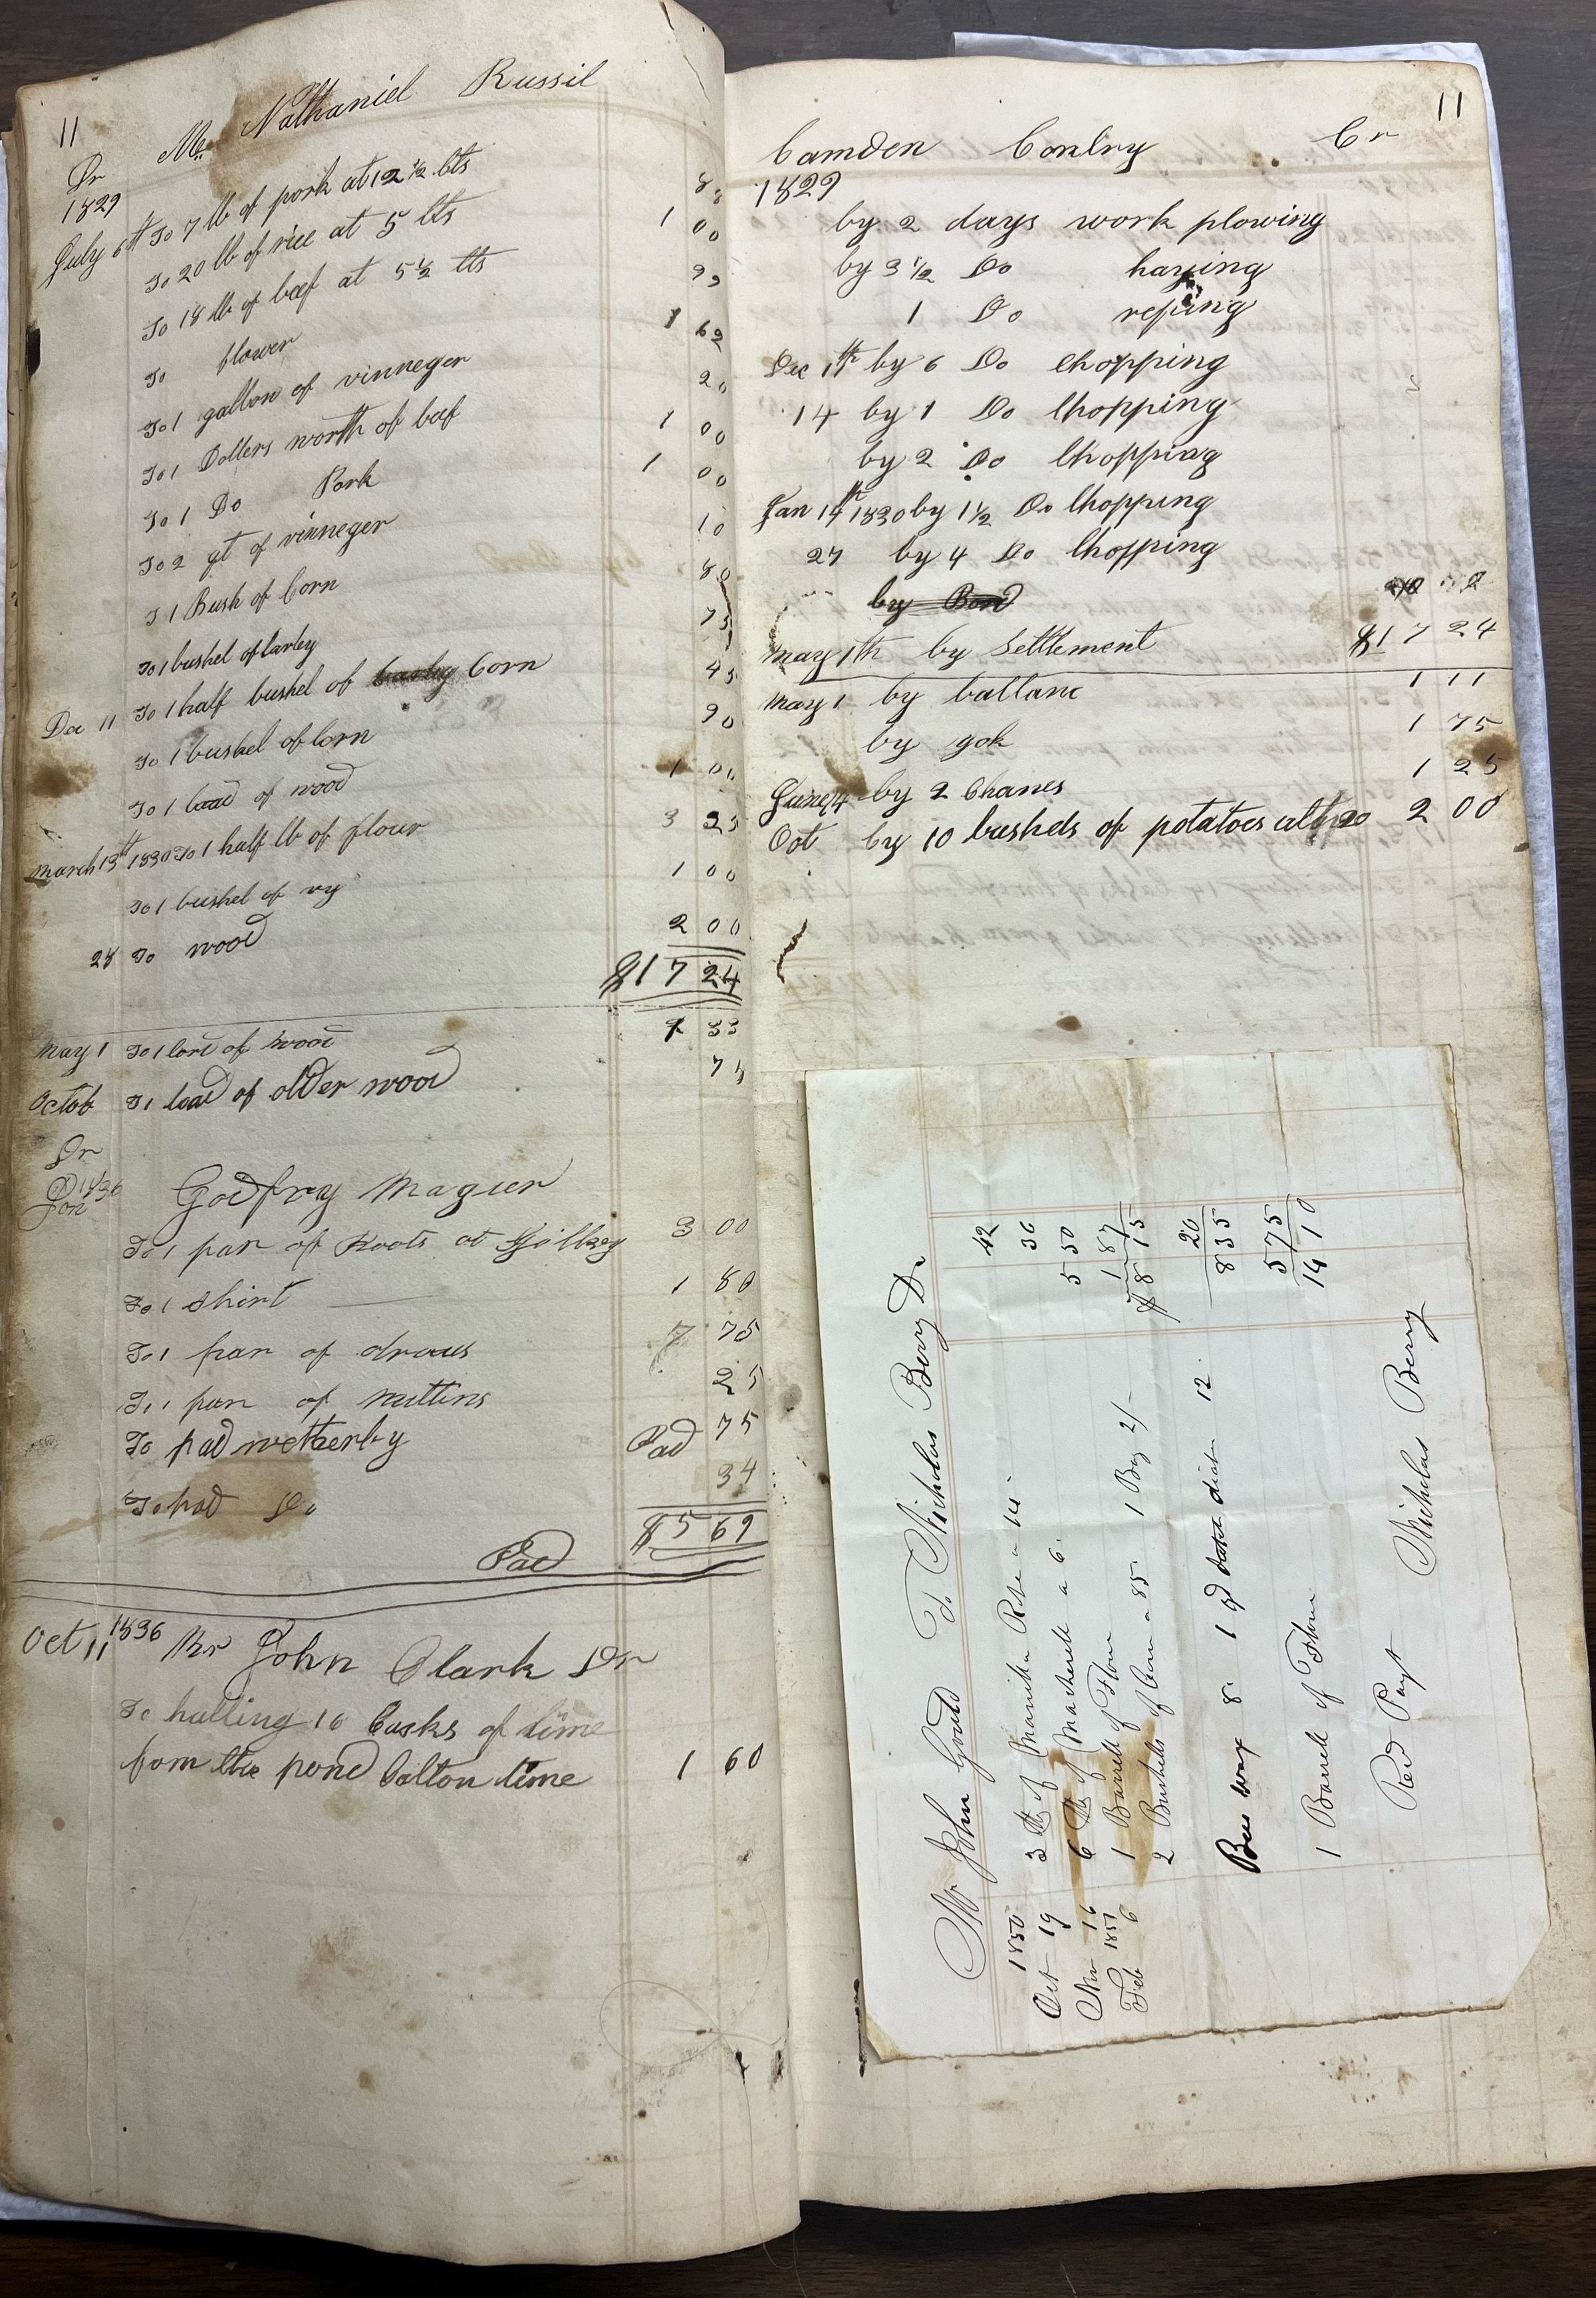 11
Mr Nathaniel Russil
Dr
1829
July 6th To 7 lb of pork at 12 1/2 Cts 88
To 20 lb of rice at 5 Cts 1 00
To 18 lb of beef at 5 1/2 Cts 99
To flower 1 62
To 1 gallon of vinneger 20
To 1 Dollers worth of beef 1 00
To 1 Do Pork 1 00
To 2 qt of vinneger 10
To 1 Bush of Corn 80
To 1 bushel of barley 75
Dec 11 To 1 half bushel of barley Corn 45
To 1 bushel of Corn 90
To 1 load of wood 1 00
March 13th 1830 To 1 half lb of flour 3 25
To 1 bushel of ry 1 00
28 To wood 2 00
$17 24
May 1 To 1 lord of wood 1 33
Octob To load of older wood 75
Dr
Jan 1836
Godfry Magier
To 1 par of Boots at Gilkey 3 00
To 1 shirt 1 80
To 1 par of drous 75
To 1 par of mittins 25
To pad wetherby Pad 75
To pad Do 34
Pad $5 69
Oct 11 1836 Mr John Clark Dr
To halling 16 Casks of lime
from the pond Calton lime 1 60
11
Camden Conlry Cr
1829
by 2 days work plowing
by 3 1/2 Do haying
1 Do reping
Dec 1th by 6 Do Chopping
14 by 1 Do Chopping
by 2 Do Chopping
Jan 14th 1830 by 1 1/2 Do Chopping
27 by 4 Do Chopping
by
May 1th by Settlement $17 24
May 1 by ballanc 1 11
by yok 1 75
June 14 by 2 Chanes 1 25
Oct by 10 bushels of potatoes at 20 2 00
Mr John Gould To Nicholas Berry Dr
1850
Oct 19 3 lb of Manilla Rope a 14 42
Nov 16 6 lb of Mackerell a 6 36
Feb 1851 6 1 Barrell of Flour 5 50
2 Bushells of Corn a 85 1 Bag 2/- 1 87
$8 15
Bees wax 8. 1 12. 20
8 35
1 Barrell of Flour 5 75
14 10
Recd Payt
Nicholas Berry